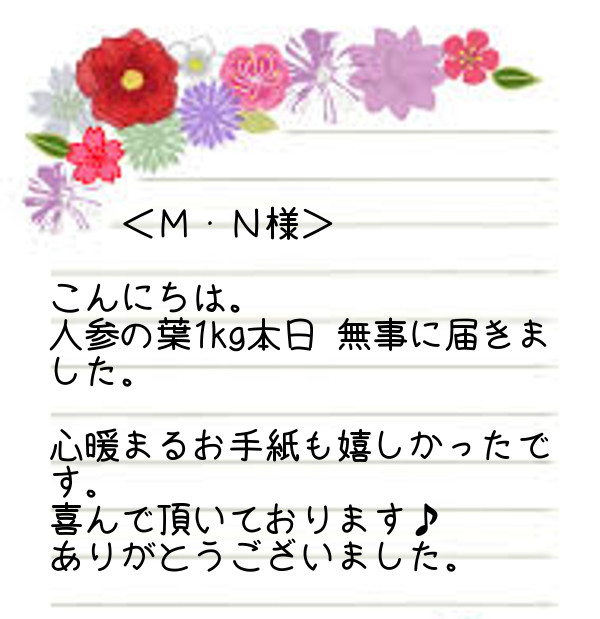 ＜M・N様＞
こんにちは。
人参の葉1kg本日 無事に届きま
した。
心暖まるお手紙も嬉しかったで
す。
喜んで頂いております♪
ありがとうございました。